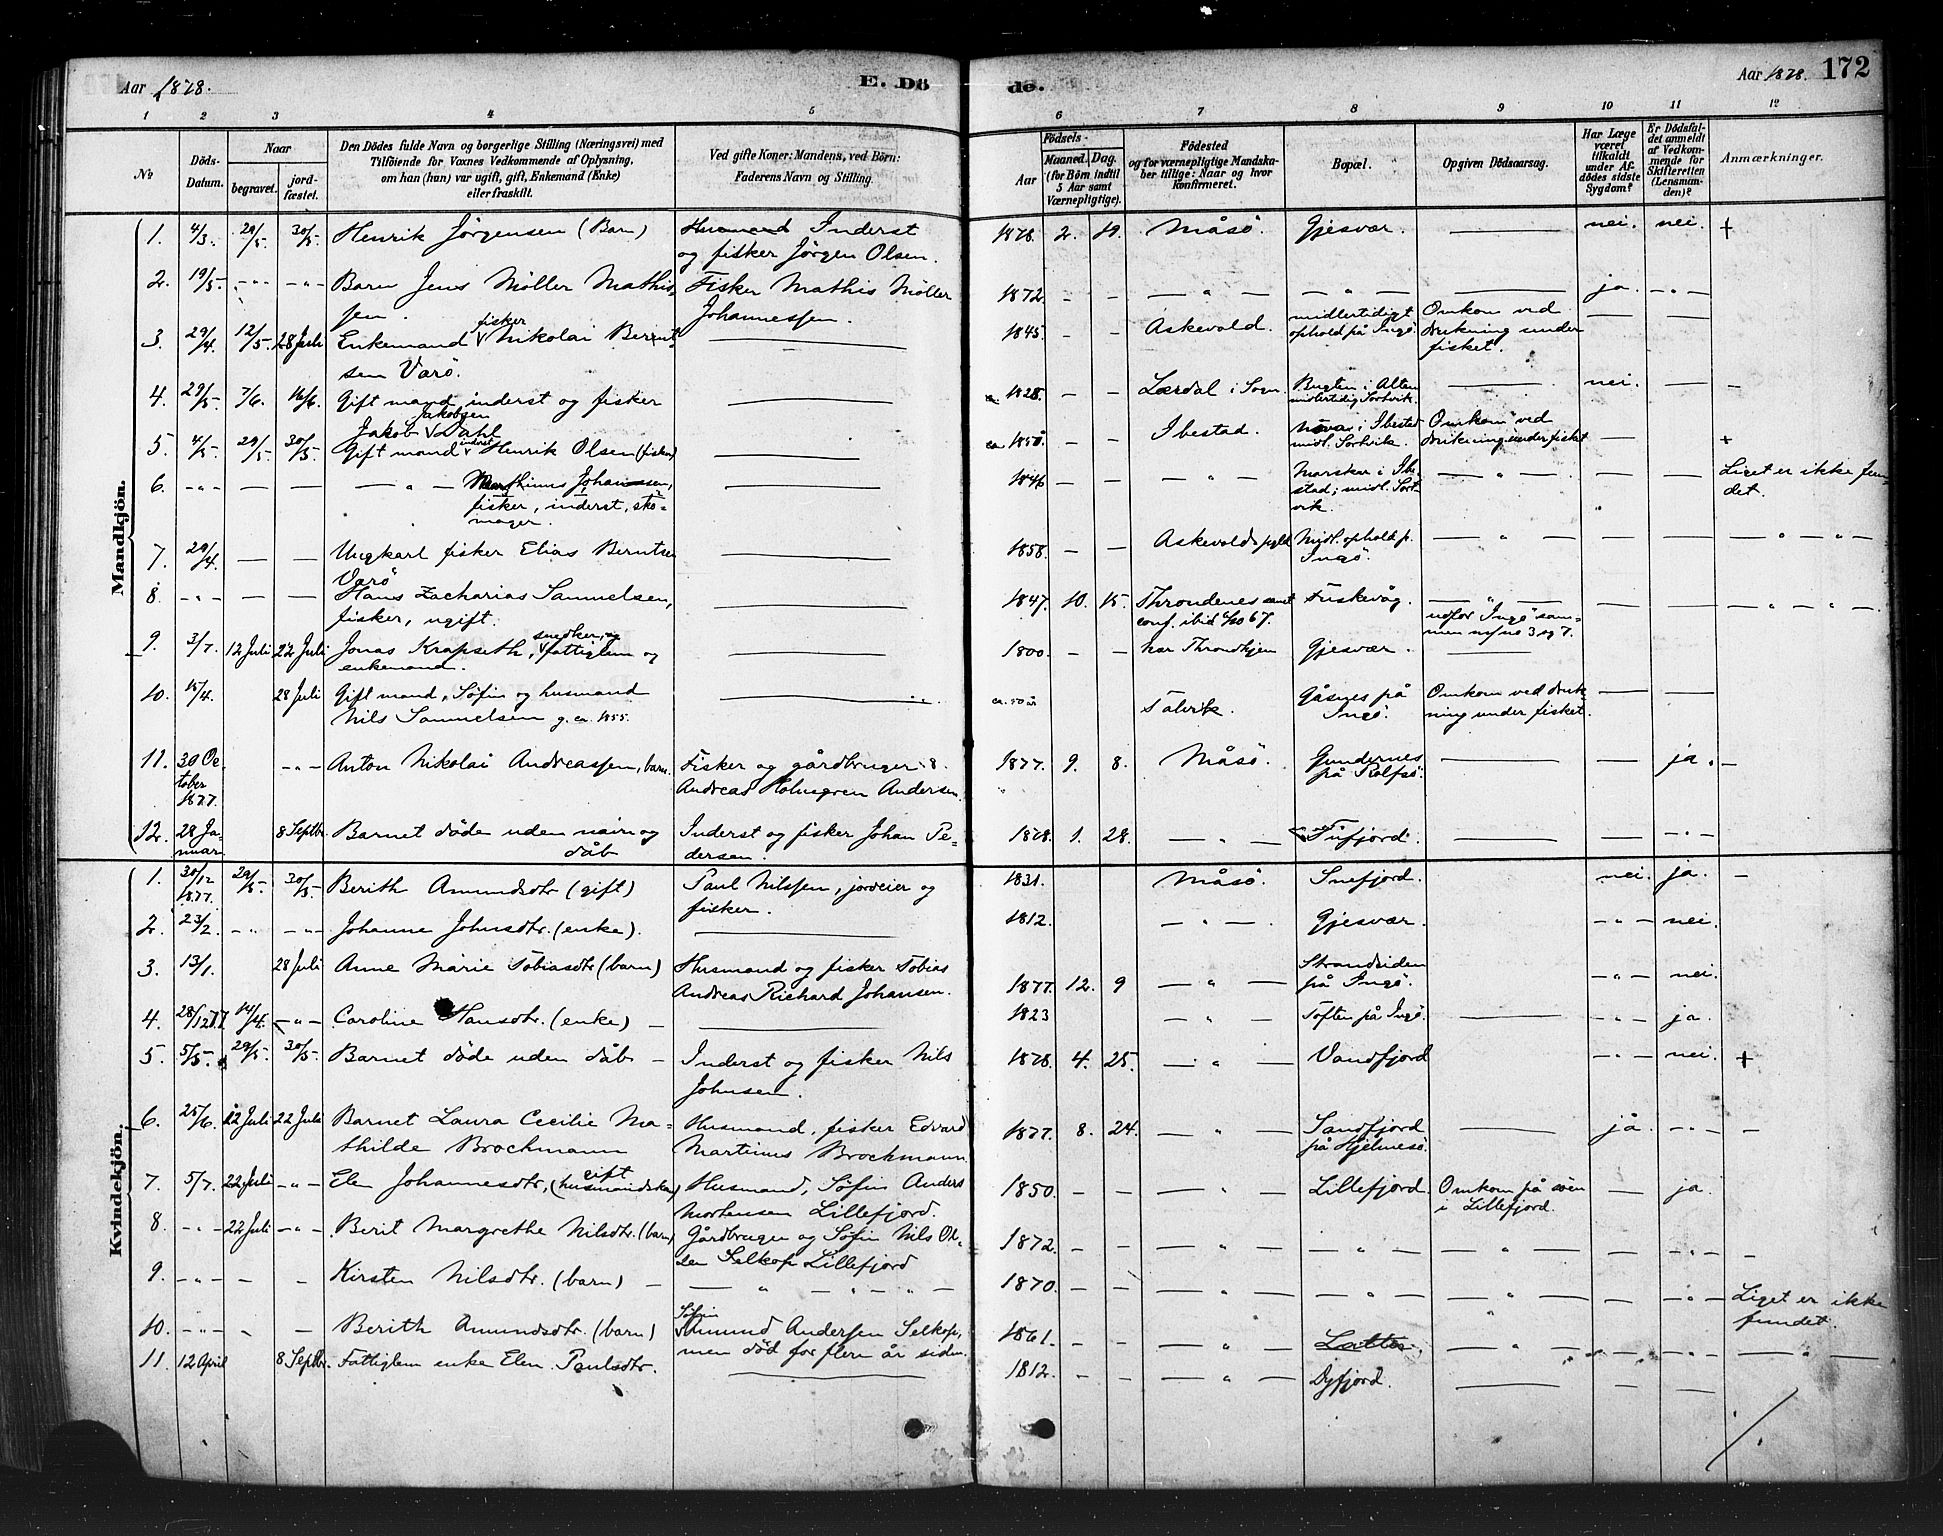 Aar 1878.
E. Dö
de.
Aar 1878.
172
1 2 3 4 5 6 7 8 9 10 11 12
No
Döds-Datum.
Naar
begravet.
jordfæstet.
Den Dödes fulde Navn og borgerlige Stilling (Næringsvei) med
Tilföiende for Voxnes Vedkommende af Oplysning,
om han (hun) var ugift, gift, Enkemand (Enke)
eller fraskilt.
Ved gifte Koner: Mandens, ved Börn:
Faderens Navn og Stilling.
Födsels-
Aar
Maaned. Dag.
(for Börn indtil
5 Aar samt
Værnepligtige).
Födested
og for værnepligtige Mandska-
ber tillige: Naar og hvor
konfirmeret.
Bopæl.
Opgiven Dödsaarsag.
Har Læge
været
tilkaldt
under Af-
dödes sidste
Sygdom?
Er Dödsfal-
det anmeldt
af Vedkom-
mende for
Skifteretten
(Lensman-
den)?
Anmærkninger.
Mandkjön.
1. 4/3. 29/5. 30/5. Henrik Jörgensen (Barn) Husmand Inderst 1878. 2. Måsö. Gjesvær. — nei. nei. +
og fisker Jörgen Olsen.
2. 19/5 - " - - " - Barn Jens Möller Mathis- Fisker Mathis Möller 1872. - - — " — — " — — ja. - " -
sen. Johannessen.
3. 29/4. 12/5. 28 Juli Enkemand fisker Nikolai Bernt- — 1845. - Askevold. midlertidigt ophold på Ingö. Omkom ved drukning under fisket. — —
sen Varö.
4. 29/5. 7/6. 16/6. Gift mand inderst og fisker — ca. 1828. — — Lærdal i Sogn. Bugten i Alten midlertidig Sortvik. — nei. — —
Jakob Jakobsen Dahl
5. 4/5. 29/5. 30/5. Gift mand inderst Henrik Olsen (fisker) — ca 1850. — — Ibestad. i Ibestad midl. Sortvik. Omkom ved drukning under fisket — +
6. - " - — — — " — Marthinus Johansen, — 1846 — — " — i Ibe- stad; midl. Sort- vik. — " — — — Liget er ikke fun-
det.
fisker, inderst, sko-
mager.
7. 29/4. — — Ungkarl fisker Elias Berntsen — 1858. — — Askevolds pgld Midl. ophold p. Ingö. — " — — — " — " —
Varö
8. - " - — — Hans Zacharias Samuelsen, — 1847. 10. 15. Throndenes samt Fuskevåg. — " — — — — " — " — " —
fisker, ugift. conf. ibid 67. udfor Ingö sam-
men m/ no 3 og 7.
9. 3/7. 12 Juli 22 Juli Jonas Krapseth, snedker, og fattiglem og — 1800. — — Throndhjem Gjesvær. —
enkemand.
10. 15/4. 28 Juli Gift mand, Söfin og husmand — ca. 50 år Talvik. Gåsnes på Ingö. Omkom ved druk- — — —
Nils Samuelsen g. ca. 1855. ning under fisket.
11. 30 Oc- - " - Anton Nikolai Andreassen, barn. Fisker og gårdbruger 1877. 9. 8. Måsö. Gunderne­s på Rolfsö. — — ja. —
tober Andreas Holmgren Andersen.
1877.
12. 28 Ja- 8 Septbr. Barnet döde uden navn og Inderst og fisker Johan Pe- 1878. 1. 28. — " — Tufjord. — — - " -
nuar dåb dersen.
Kvindekjön.
1. 30/12 1877. 29/5. 30/5. Berith Amundsdtr (gift) Paul Nilssen, jordeier og 1831. Måsö. Snefjord. nei. ja. —
fisker.
2. 23/2. - " - - " - Johanne Johnsdtr. (enke). — 1812. — " — Gjesvær. - " - nei.
3. 13/1. 28 Juli Anne Marie Tobiasdtr (barn) Husmand og fisker Tobias 1877. 12. 9 — " — Strandsiden på Ingö. - " - nei.
Andreas Richard Johansen.
4. 28/12 77. 14/4. - " - Caroline Hansdtr. (enke) — — 1823 — " — Toften på Ingö. — - " - ja.
5. 5/5. 29/5. 30/5. Barnet döde uden dåb — Inderst og fisker Nils 1878. 4. 25. — " — Vandfjord - " - nei. +
Johnsen.
6. 25/6. 12 Juli 22 Juli Barnet Laura Cecilie Ma- Husmand, fisker Edvard 1877. 8. 24. — " — Sandfjord på Hjelmesö. — jå - " - —
thilde Brochmann Martinus Brochmann
7. 5/7. 22 Juli - " - Elen Johannesdtr, (gift husmandskone) Husmand, Söfin Anders 1850. — — — " — Lillefjord. Omkom på söen i Lillefjord. — ja.
Mortensen Lillefjord.
8. - " - 22 Juli - " - Berit Margrethe Nilsdtr. (barn) Gårdbruger og Söfin Nils Ol- 1872. — — — " — — " — — " — — - " - —
sen Selkop Lillefjord
9. - " - — — Kirsten Nilsdtr. (barn) — — " — " — 1870. — — — " — — " — — " — — - " - Liget er ikke
fundet.
10. - " - — — Berith Amundsdtr. (barn) Söfin Amund Andersen Selkop, 1861. — — — " — Latter — " — — — — " —
men död for flere år siden.
11. 12 April 8 Septbr. Fattiglem enke Elen Paulsdtr. — 1812. — — — " — Dyfjord. — — —